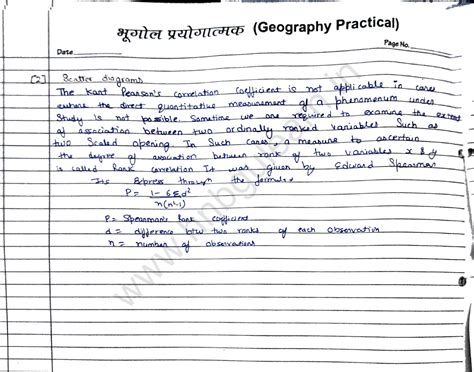 भूगोल प्रयोगात्मक (Geography Practical)
Page No.
Date
[2] Scatter diagrams
The Kant Pearson's correlation coefficient is not applicable in cases
where the direct quantitative measurement of a phenomenon under
study is not possible. Sometime we are required to examine the extent
of association between two ordinally ranked variables Such as
two Scaled opening. In Such cases, measure to ascertain
the degree of association between rank of two variables x & y
is called Rank correlation It was given by Edward Spearman
Its Express through the formula
P = 1 - 6Σd²
n(n²-1)
P = Spearman's Rank coefficient
d = difference btw two ranks of each observation
n = number of observations